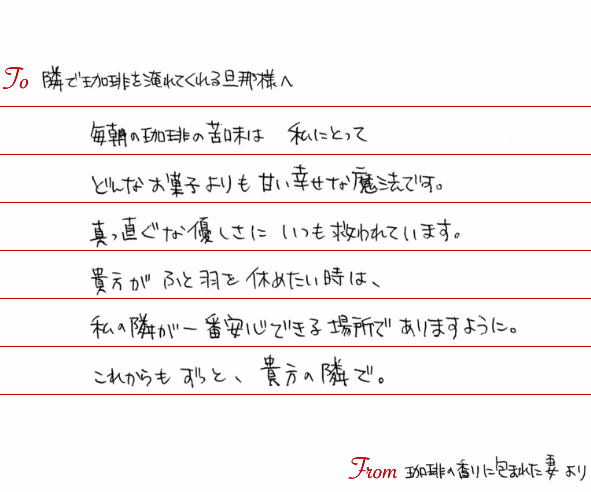 To 隣で珈琲を淹れてくれる旦那様へ
毎朝の珈琲の苦味は 私にとって
どんなお菓子よりも甘い幸せな魔法です。
真っ直ぐな優しさに いつも救われています。
貴方が ふと羽を休めたい時は、
私の隣が一番安心できる場所でありますように。
これからもずっと、貴方の隣で。
From 珈琲の香りに包まれた妻より